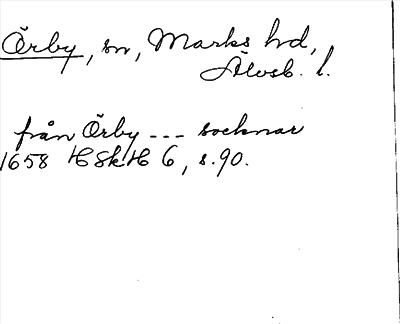 Örby, sn, Marks hd,
Älvsb. l.
från Örby --- socknar
1658 HSkH 6, s. 90.